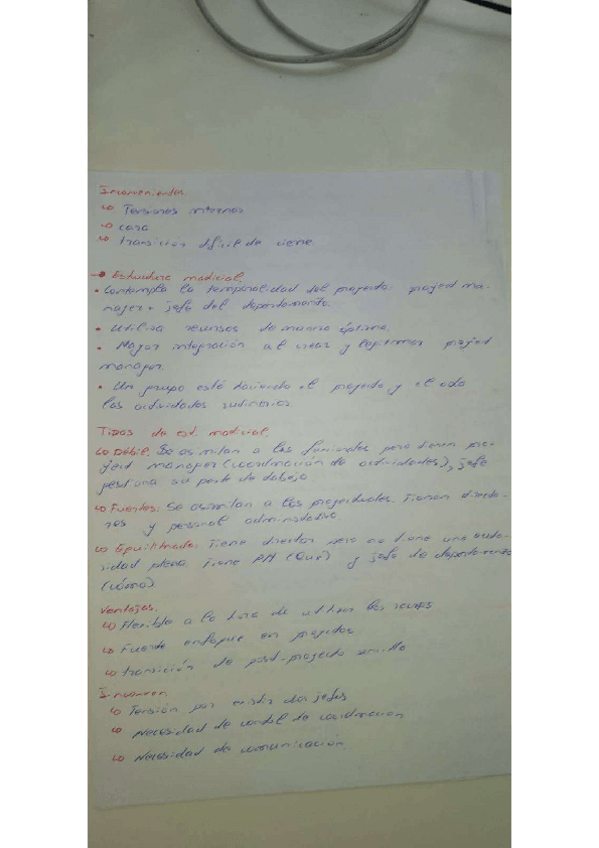 Inconvenientes
↳ Tensiones internas
↳ cara
↳ transición difícil de
→ Estructura matricial
• Contempla la temporalidad del proyecto: project ma-
nager + jefe del departamento.
• Utiliza recursos de manera óptima.
• Mayor integración al crear y project
manager.
• Un grupo está haciendo el proyecto y el otro
las actividades ordinarias.
Tipos de est. matricial.
↳ Débil: Se asimilan a las funcionales pero tienen pro-
ject manager (coordinación de actividades), jefe
gestiona su parte de trabajo
↳ Fuertes: Se asimilan a las proyectuales. Tienen directo-
res y personal administrativo.
↳ Equilibrada: Tiene director pero no tiene una auto-
ridad plena. Tiene PM (Qué) y jefe de departamento
(cómo)
Ventajas.
↳ Flexible a la hora de utilizar los recursos
↳ Fuerte enfoque en proyectos
↳ transición de post-proyecto sencilla
Inconven
↳ Tensión por existir dos jefes
↳ Necesidad de control de coordinación
↳ Necesidad de comunicación